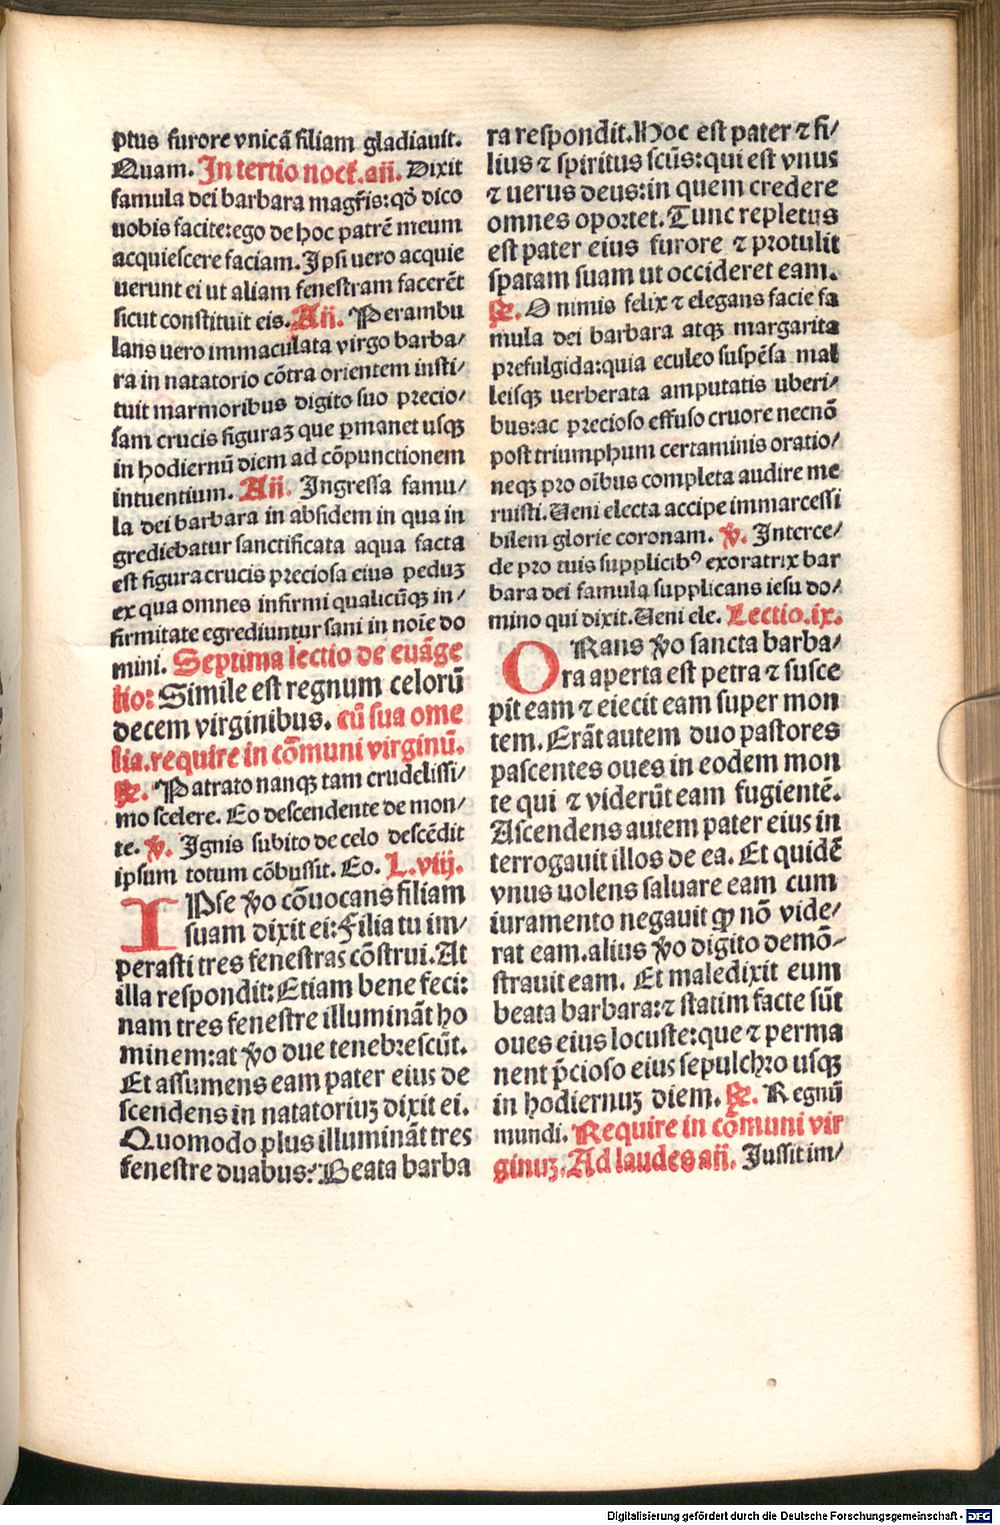 ptus furore vnicã filiam gladiauit.
Quam. In tertio nocť. añ. Dixit
famula dei barbara magr̃is: qď dico
uobis facite: ego de hoc patrẽ meum
acquiescere faciam. Ipsi uero acquie
uerunt ei ut aliam fenestram facerẽt
sicut constituit eis. Añ. Perambu
lans uero immaculata virgo barba/
ra in natatorio cõtra orientem insti/
tuit marmoribus digito suo precio/
sam crucis figuraꝫ que ꝑmanet usqꝫ
in hodiernũ diem ad cõpunctionem
intuentium. Añ. Ingressa famu/
la dei barbara in absidem in qua in
grediebatur sanctificata aqua facta
est figura crucis preciosa eius peduꝫ
ex qua omnes infirmi qualicũqꝫ in/
firmitate egrediuntur sani in noĩe do
mini. Septima lectio de euãge
lio: Simile est regnum celorũ
decem virginibus. cũ sua ome
lia. require in cõmuni virginũ.
℞. Patrato nanqꝫ tam crudelissi/
mo scelere. Eo descendente de mon/
te. ℣. Ignis subito de celo descẽdit
ipsum totum cõbussit. Eo. L. viij.
IPse ꝟo cõuocans filiam
suam dixit ei: Filia tu im/
perasti tres fenestras cõstrui. At
illa respondit: Etiam bene feci:
nam tres fenestre illuminãt ho
minem: at ꝟo due tenebrescũt.
Et assumens eam pater eius de
scendens in natatoriuꝫ dixit ei.
Quomodo plus illuminãt tres
fenestre duabus: Beata barba
ra respondit. Hoc est pater ⁊ fi/
lius ⁊ spiritus scũs: qui est vnus
⁊ uerus deus: in quem credere
omnes oportet. Tunc repletus
est pater eius furore ⁊ protulit
spatam suam ut occideret eam.
℞. O nimis felix ⁊ elegans facie fa
mula dei barbara atqꝫ margarita
prefulgida: quia eculeo suspẽsa mal
leisqꝫ verberata amputatis uberi/
bus: ac precioso effuso cruore necnõ
post triumphum certaminis oratio/
neqꝫ pro oĩbus completa audire me
ruisti. Ueni electa accipe immarcessi
bilem glorie coronam. ℣. Interce/
de pro tuis supplicibꝰ exoratrix bar
bara dei famula supplicans iesu do/
mino qui dixit. Ueni ele. Lectio. ix.
ORans ꝟo sancta barba/
ra aperta est petra ⁊ susce
pit eam ⁊ eiecit eam super mon
tem. Erãt autem duo pastores
pascentes oues in eodem mon
te qui ⁊ viderũt eam fugientẽ.
Ascendens autem pater eius in
terrogauit illos de ea. Et quidẽ
vnus uolens saluare eam cum
iuramento negauit ꝙ nõ vide/
rat eam. alius ꝟo digito demõ-
strauit eam. Et maledixit eum
beata barbara: ⁊ statim facte sũt
oues eius locuste: que ⁊ perma
nent p̃cioso eius sepulchro usqꝫ
in hodiernuꝫ diem. ℞. Regnũ
mundi. Require in cõmuni vir
ginuꝫ. Ad laudes añ. Jussit im/
Digitalisierung gefördert durch die Deutsche Forschungsgemeinschaft - DFG